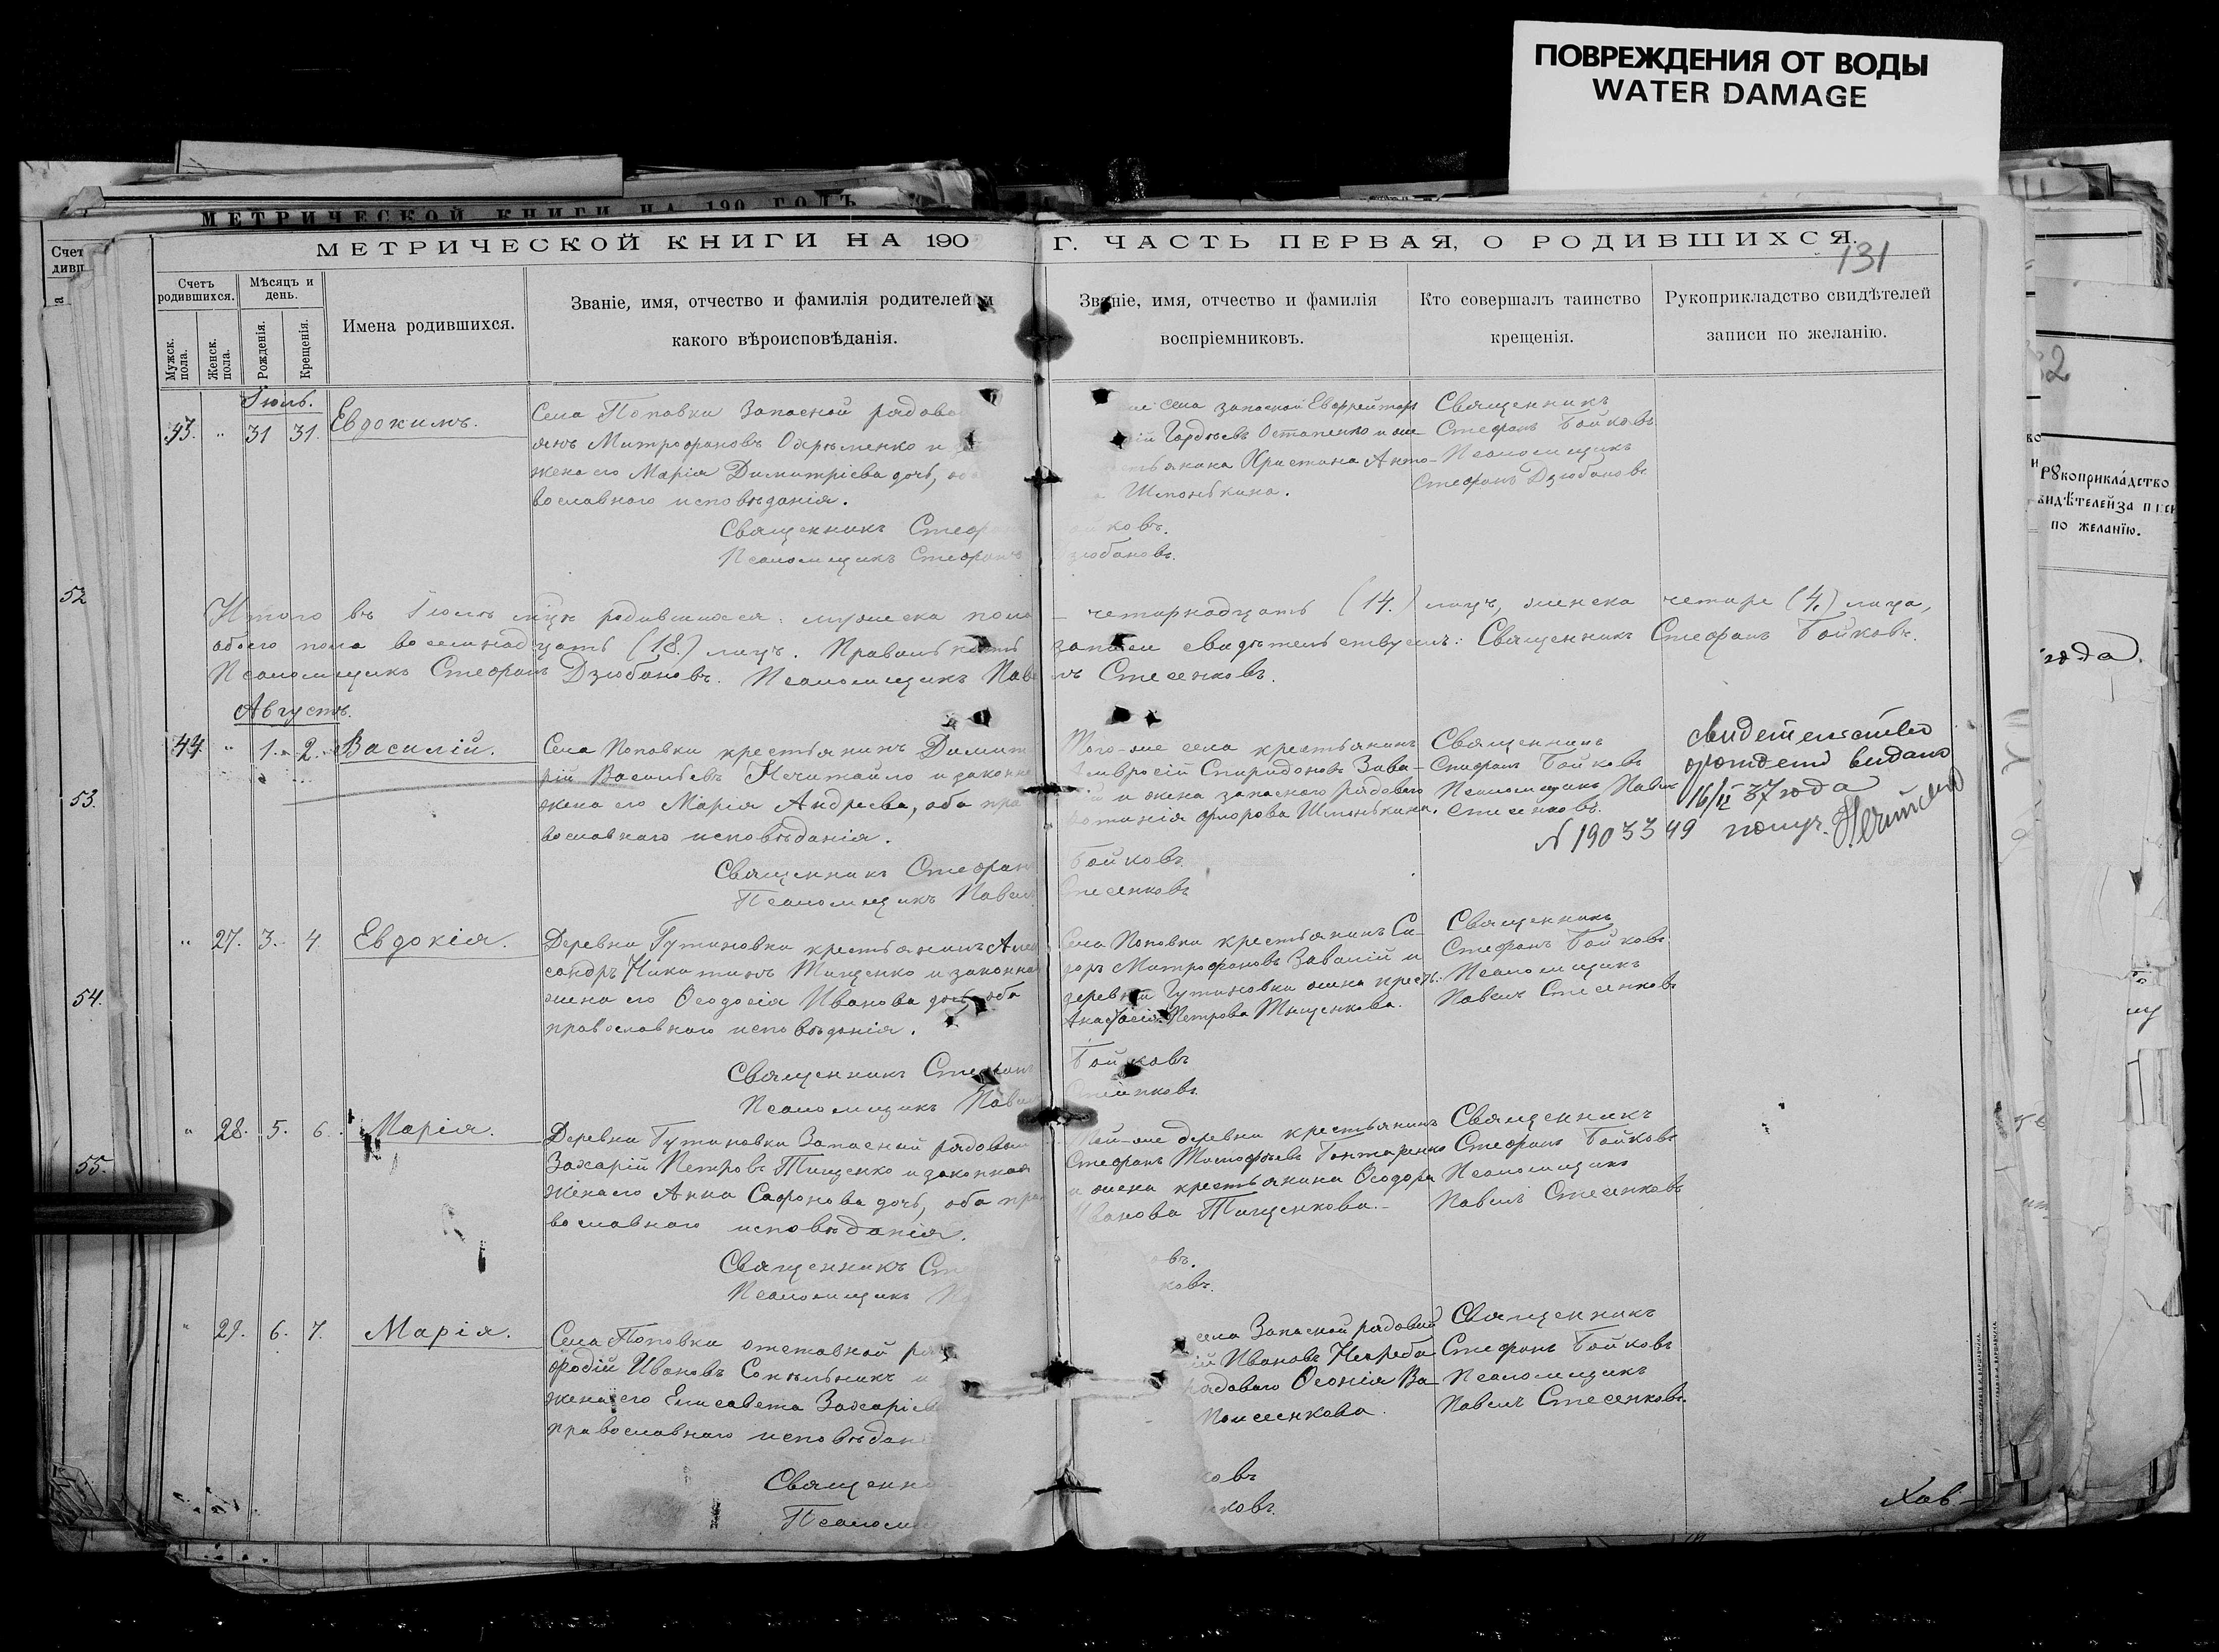 ПОВРЕЖДЕНИЯ ОТ ВОДЫ
WATER DAMAGE
МЕТРИЧЕСКОЙ КНИГИ НА 190 ГОДЪ
МЕТРИЧЕСКОЙ КНИГИ НА 190 Г. ЧАСТЬ ПЕРВАЯ, О РОДИВШИХСЯ.
131
Счетъ родившихся.
Мужск. пола.
Женск. пола.
Мѣсяцъ и день.
Рожденія.
Крещенія.
Имена родившихся.
Званіе, имя, отчество и фамилія родителей и
какого вѣроисповѣданія.
Званіе, имя, отчество и фамилія
воспріемниковъ.
Кто совершалъ таинство
крещенія.
Рукоприкладство свидѣтелей
записи по желанію.
Іюль.
43. " 31 31. Евдокимъ.
Села Поповки Запасной рядово
Митрофановъ Охрѣменко и
жена его Марія Димитріева дочь,
вославнаго исповѣданія.
Священникъ Стеф
Псаломщикъ Стефанъ
села запасной Ефрейторъ
Гордѣевъ Остапенко и
Христина Анто-
Шпонькина.
ковъ.
зюбановъ.
Священникъ
Стефанъ Бойковъ
Псаломщикъ
Стефанъ Дзюбановъ
Итого въ Іюлѣ родившихся: мужеска пола четырнадцать (14.) лицъ, женска четыре (4.) лица,
обоего пола восемнадцать (18.) лицъ. Правильность записи свидѣтельствуемъ: Священникъ Стефанъ Бойковъ.
Псаломщикъ Стефанъ Дзюбановъ. Псаломщикъ Павелъ Стесенковъ.
Августъ.
44. " 1. 2. Василій.
Села Поповки крестьянинъ Димит
рій Васильевъ Нечитайло и законн
жена его Марія Андреева, оба пра
вославнаго исповѣданія.
Священникъ Стефанъ
Псаломщикъ Павелъ
Того-же села крестьянинъ
Амвросій Спиридоновъ Зава-
и жена запаснаго рядового
Флорова Шпонькина.
Бойковъ
Стесенковъ
Священникъ
Стефанъ Бойковъ
Псаломщикъ Павелъ
Стесенковъ.
16/II 37 года
N 1903349 получ.
" 27. 3. 4. Евдокія.
Деревни Гутиновки крестьянинъ Алек
сандръ Никитинъ Тищенко и законная
жена его Ѳеодосія Иванова дочь, оба
православнаго исповѣданія.
Священникъ Стефанъ
Псаломщикъ Павелъ
Села Поповки крестьянинъ Си-
доръ Митрофановъ Завалій и
деревни Гутиновки жена крест.
Анастасія Петрова Тищенкова.
Бойковъ
Священникъ
Стефанъ Бойковъ
Псаломщикъ
Павелъ Стесенковъ
" 28. 5. 6. Марія.
Деревни Гутиновки Запасной рядовой
Захарій Петровъ Тищенко и законная
жена его Анна Сафонова дочь, оба пра
вославнаго исповѣданія.
Священникъ Сте
Псаломщикъ
Той-же деревни крестьянинъ
Стефанъ Тимофѣевъ Гонтаренко
и жена крестьянина Ѳеодора
Иванова Тищенкова.-
въ.
ковъ.
Священникъ
Стефанъ Бойковъ
Псаломщикъ
Павелъ Стесенковъ
" 29. 6. 7. Марія.
Села Поповки отставной
Ивановъ и
жена его Елисавета Захаріев
православнаго исповѣдан
Священни
Псаломщ
села Запасной рядовой
Ивановъ
рядоваго Ѳеонія Ва
ковъ
нковъ.
Священникъ
Стефанъ Бойковъ
Псаломщикъ
Павелъ Стесенковъ.
52
53.
54.
55.
года.
Рукоприкладство
по желанію.